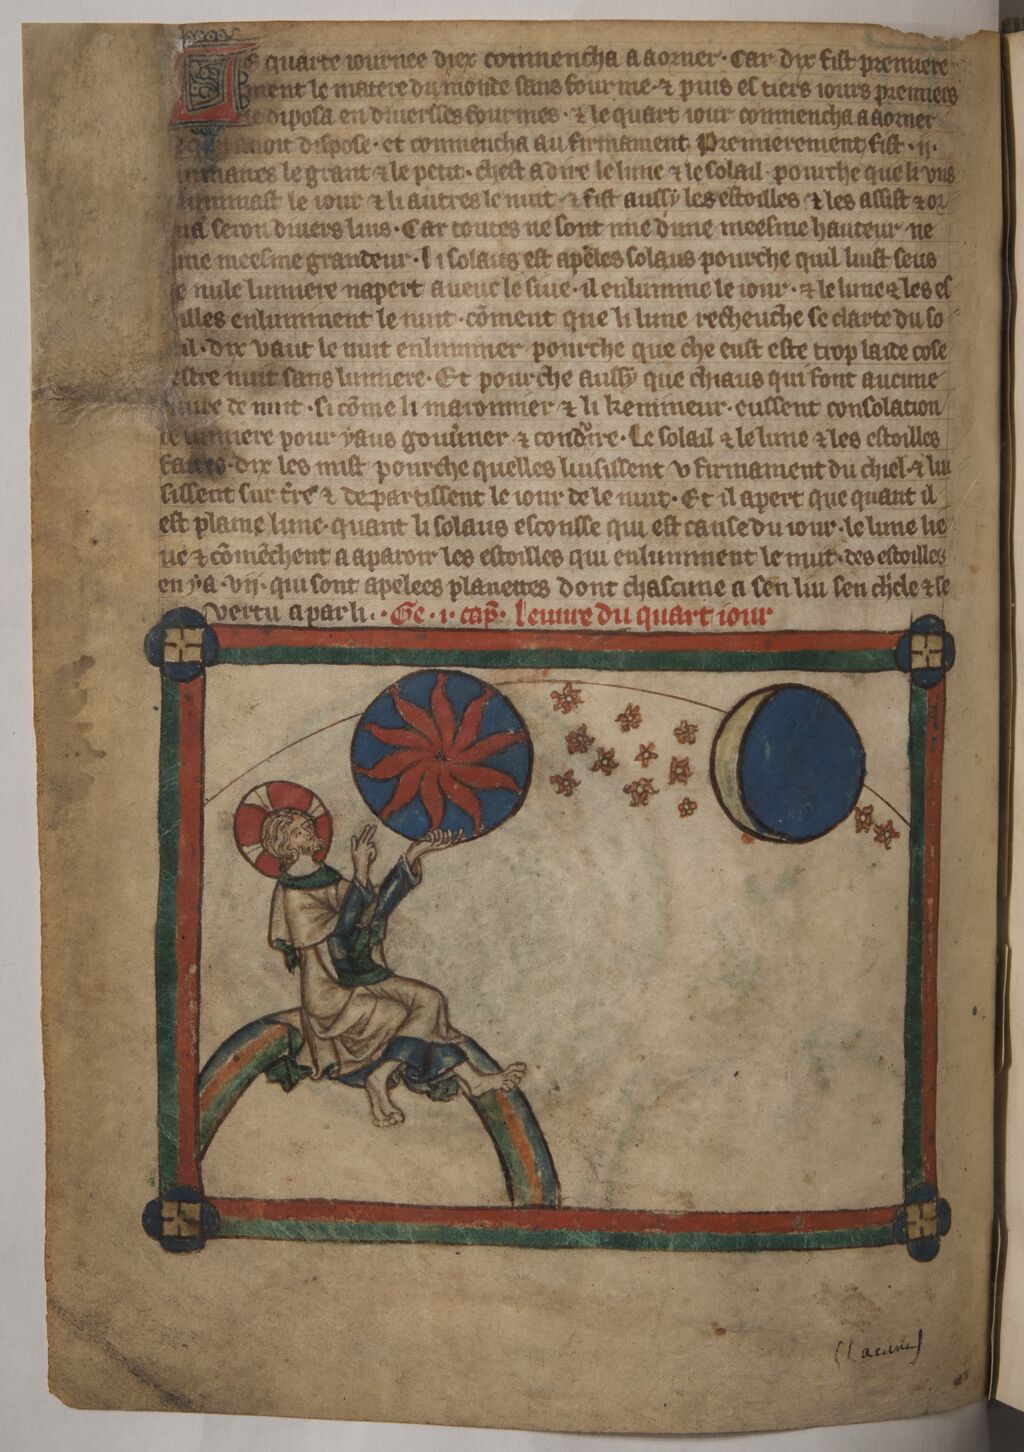 Le quarte iournee diex commencha a aorner · Car dix fist premiere
ment le matere du monde sans fourme · ⁊ puis es tiers iours premiers
le diposa en diuersses fourmes · ⁊ le quart iour commencha a aorner
dispose · et commencha au firmament Premierement fist · ij ·
le grant ⁊ le petit · chest a dire le lune ⁊ le solail · pourche que li vns
le iour ⁊ li autres le nuit · ⁊ fist aussy les estoilles ⁊ les assist ⁊ or
na seron diuers lius · Car toutes ne sont mie dune meesme hauteur ne
meesme grandeur · li solaus est apeles solaus pourche quil luist seus
nule lumiere napert aueuc le siue · il enlumine le iour · ⁊ le lune ⁊ les es
illes enluminent le nuit · cōment que li lune recheuche se clarte du so
il · dix vaut le nuit enluminer pourche que che eust este trop laide cose
estre nuit sans lumiere · Et pourche aussy que chiaus qui font aucune
de nuit · si cōme li maronnier ⁊ li kemineur · eussent consolation
lumiere pour yaus gouūner ⁊ condure · Le solail ⁊ le lune ⁊ les estoilles
faites · dix les mist pourche quelles luisissent v firmament du chiel · ⁊ lui
sissent sur tr̄e ⁊ departissent le iour de le nuit · Et il apert que quant il
est plaine lune · quant li solaus esconsse qui est cause du iour · le lune lie
ue ⁊ cōmēchent a aparoir les estoilles qui enluminent le nuit · des estoilles
en y a · vij · qui sont apelees planettes dont chascune a sen liu sen chīcle ⁊ se
vertu a par li · Ge · i · cap̄ · leuure du quart iour
(Lacune)